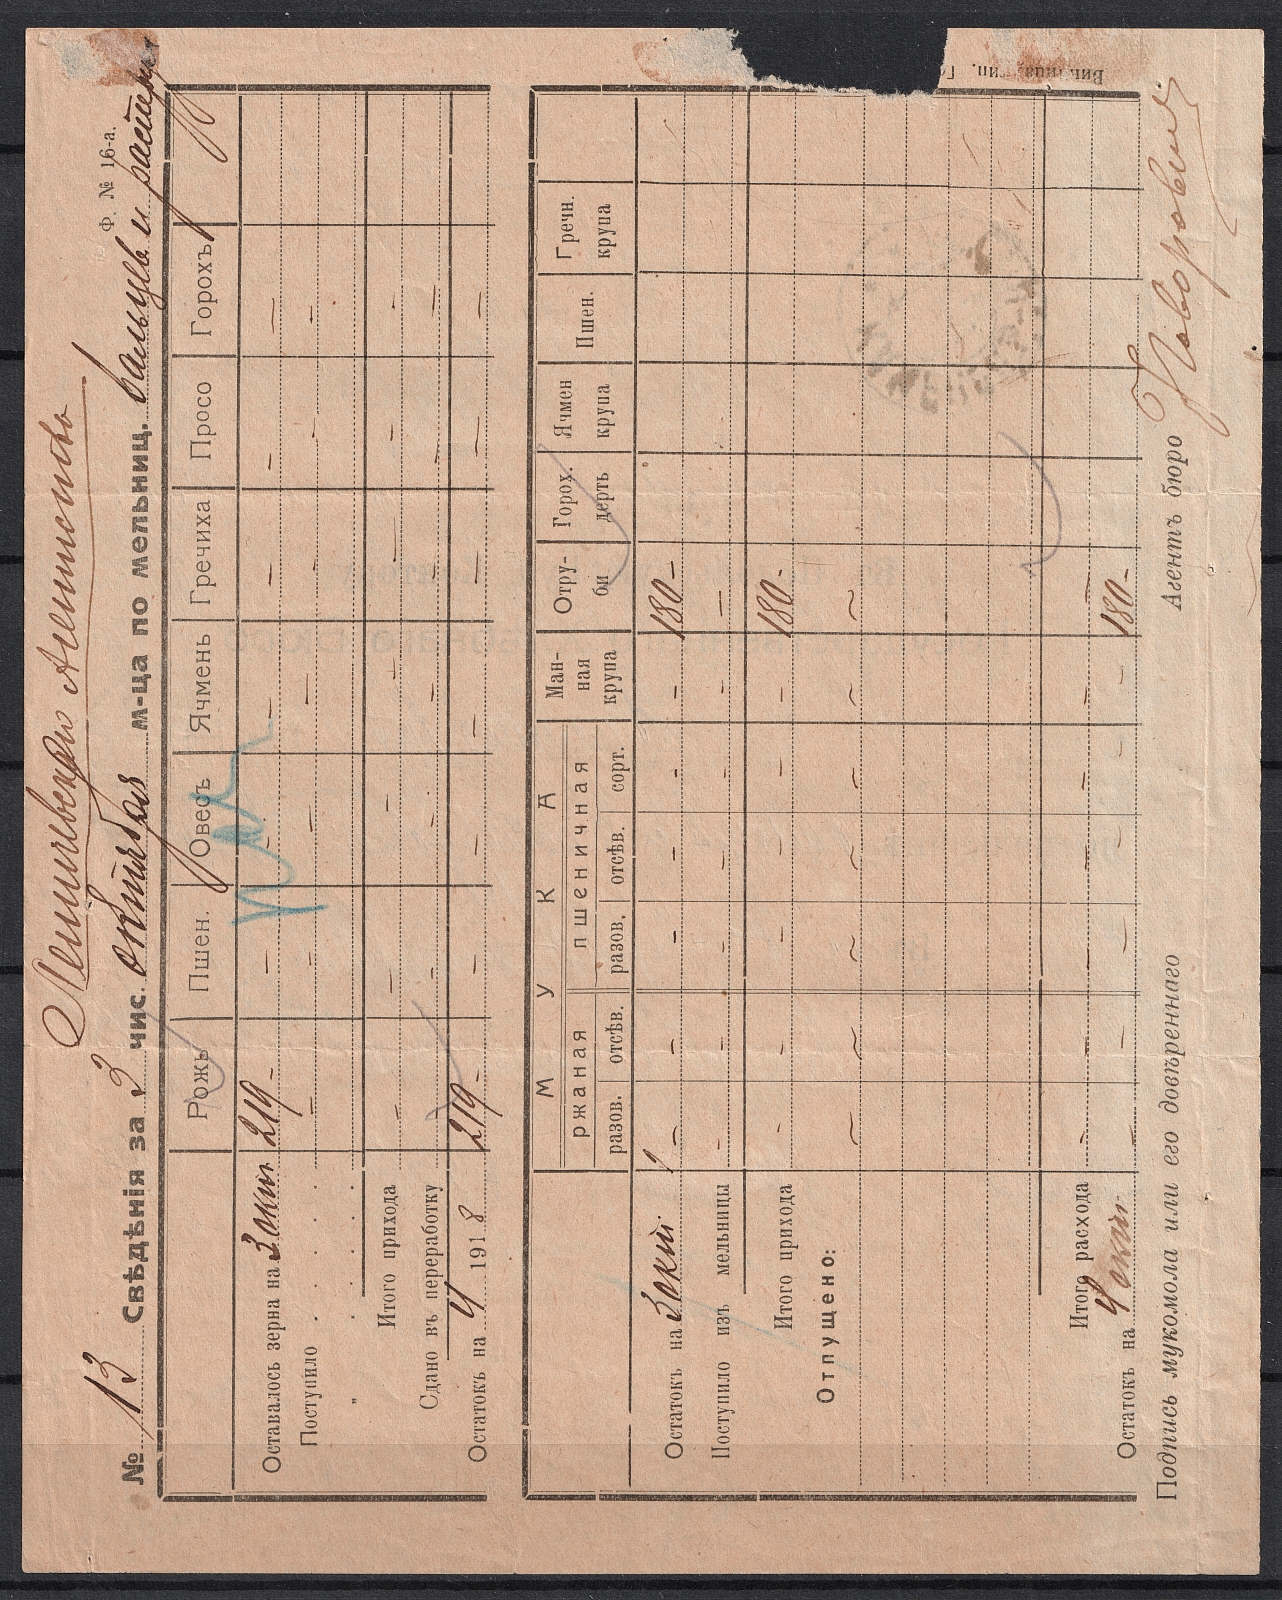 Ф. № 16-а.
№ 13 Свѣдѣнія за 3 чис. октября м-ца по мельниц. вальцевъ и
Рожь Пшен. Овесъ Ячмень Гречиха Просо Горохъ
Оставалось зерна на 3 окт 219 - - - - - - -
Поступило - - - - - - -
"
Итого прихода - - - - - - -
Сдано въ переработку - - - - - -
Остатокъ на 4 1918 219 - - - - - - -
М У К А
ржаная пшеничная
разов. отсѣв. разов. отсѣв. сорт. Ман-ная крупа Отру-би Горох. дерть Ячмен крупа Пшен. Гречн. крупа
Остатокъ на 3 окт - - - - - - 180 -
Поступило изъ мельницы - - - - - - -
Итого прихода - - - - - - 180 -
Отпущено: ~ ~ ~ ~ ~ ~ ~
Итого расхода - - - - - - -
Остатокъ на 4 окт - - - - - - 180 -
Подпись мукомола или его довѣреннаго Агентъ бюро